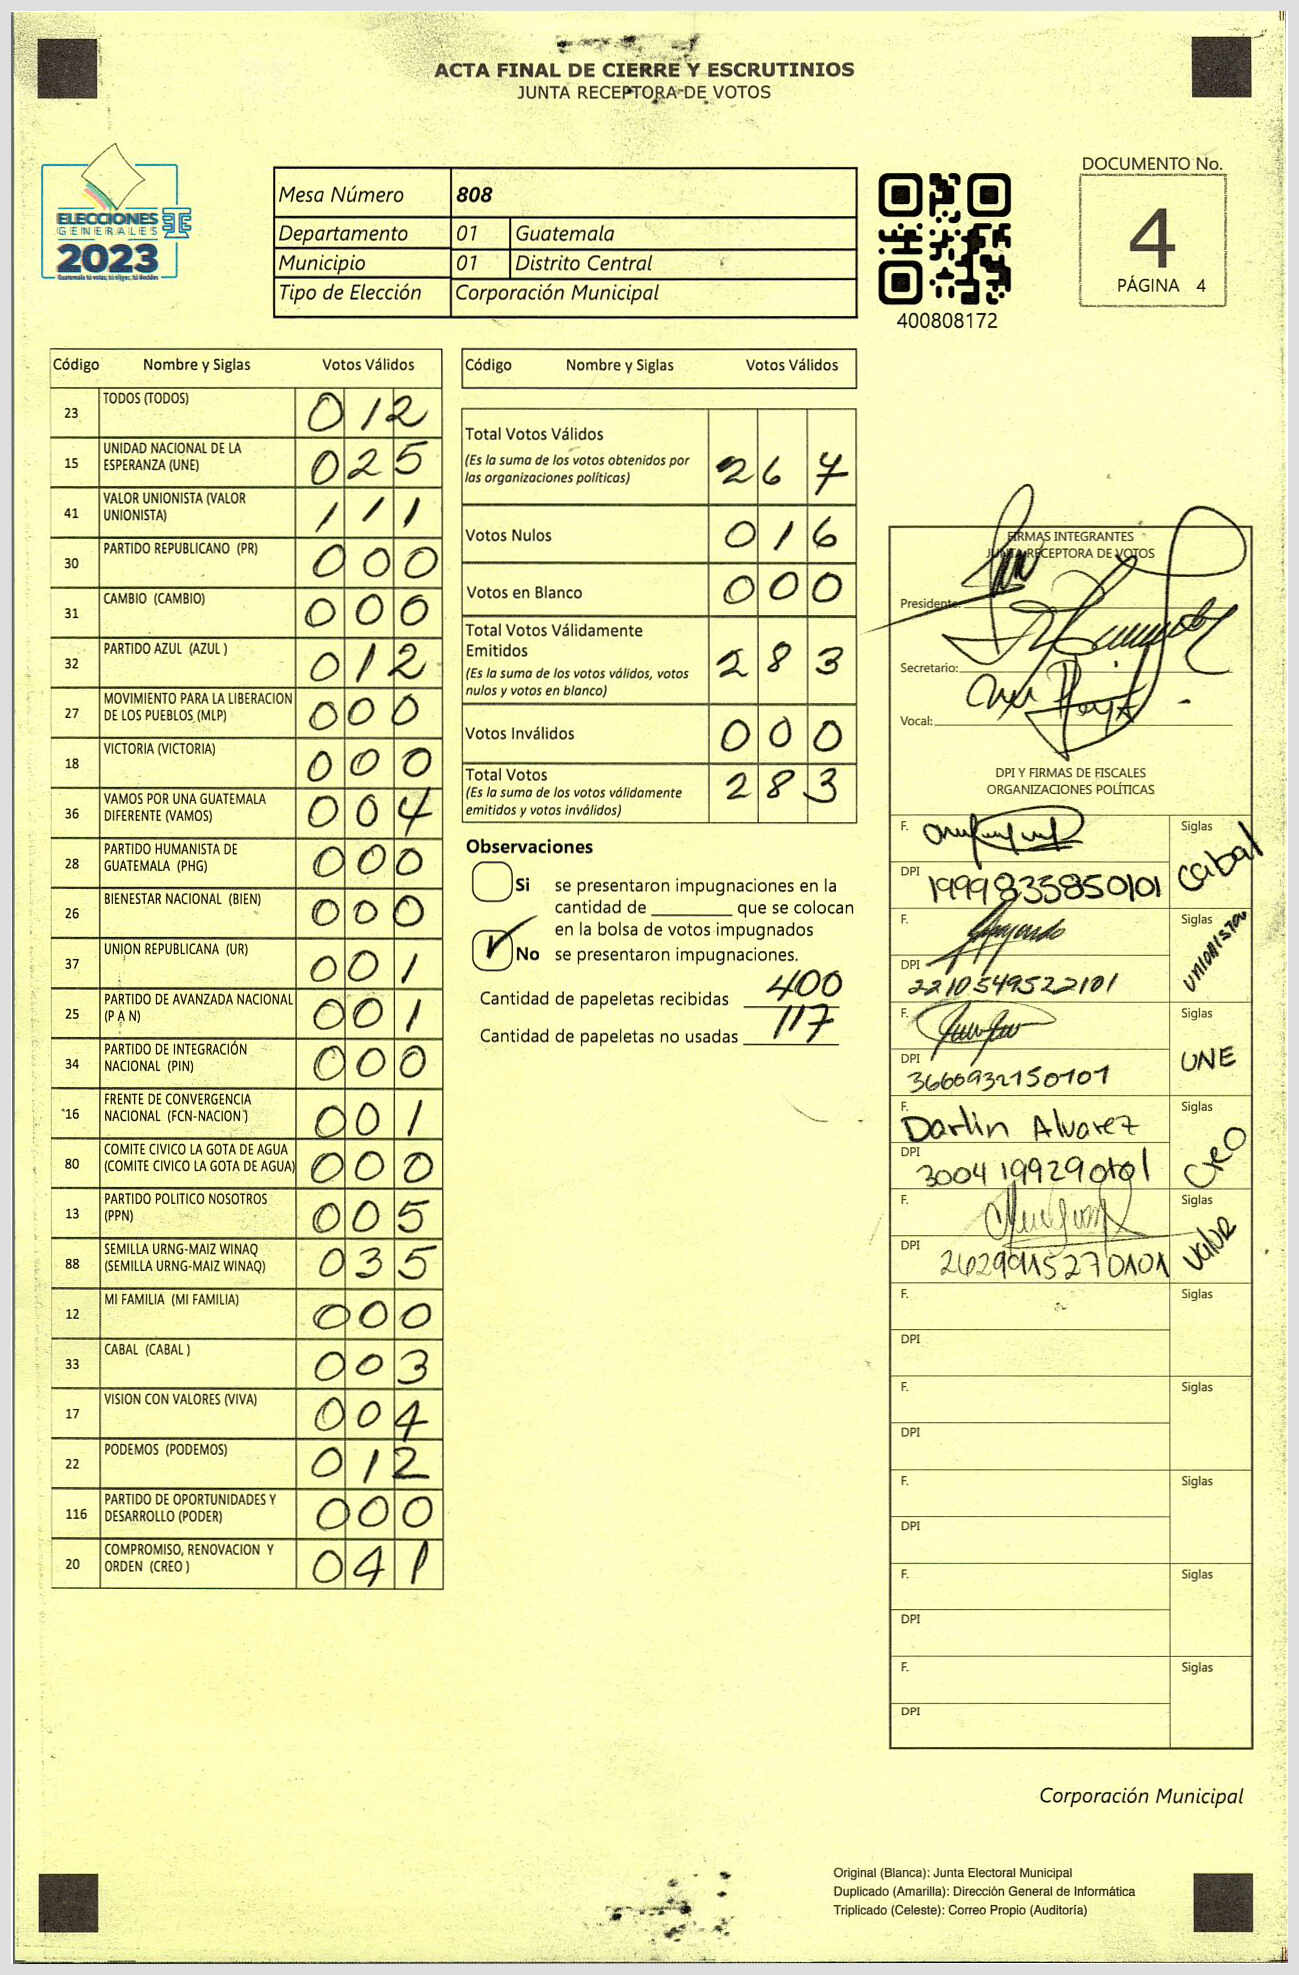 ACTA FINAL DE CIERRE Y ESCRUTINIOS
JUNTA RECEPTORA DE VOTOS
ELECCIONES
GENERALES
2023
Guatemala tú votas, tú eliges, tú decides
Mesa Número 808
Departamento 01 Guatemala
Municipio 01 Distrito Central
Tipo de Elección Corporación Municipal
400808172
DOCUMENTO No.
4
PÁGINA 4
Código Nombre y Siglas Votos Válidos
23 TODOS (TODOS) 012
15 UNIDAD NACIONAL DE LA
ESPERANZA (UNE) 025
41 VALOR UNIONISTA (VALOR
UNIONISTA) 111
30 PARTIDO REPUBLICANO (PR) 000
31 CAMBIO (CAMBIO) 000
32 PARTIDO AZUL (AZUL ) 012
27 MOVIMIENTO PARA LA LIBERACION
DE LOS PUEBLOS (MLP) 000
18 VICTORIA (VICTORIA) 000
36 VAMOS POR UNA GUATEMALA
DIFERENTE (VAMOS) 004
28 PARTIDO HUMANISTA DE
GUATEMALA (PHG) 000
26 BIENESTAR NACIONAL (BIEN) 000
37 UNION REPUBLICANA (UR) 001
25 PARTIDO DE AVANZADA NACIONAL
(P A N) 001
34 PARTIDO DE INTEGRACIÓN
NACIONAL (PIN) 000
16 FRENTE DE CONVERGENCIA
NACIONAL (FCN-NACION ) 001
80 COMITE CIVICO LA GOTA DE AGUA
(COMITE CIVICO LA GOTA DE AGUA) 000
13 PARTIDO POLITICO NOSOTROS
(PPN) 005
88 SEMILLA URNG-MAIZ WINAQ
(SEMILLA URNG-MAIZ WINAQ) 035
12 MI FAMILIA (MI FAMILIA) 000
33 CABAL (CABAL ) 003
17 VISION CON VALORES (VIVA) 004
22 PODEMOS (PODEMOS) 012
116 PARTIDO DE OPORTUNIDADES Y
DESARROLLO (PODER) 000
20 COMPROMISO, RENOVACION Y
ORDEN (CREO ) 041
Código Nombre y Siglas Votos Válidos
Total Votos Válidos
(Es la suma de los votos obtenidos por
las organizaciones políticas) 267
Votos Nulos 016
Votos en Blanco 000
Total Votos Válidamente
Emitidos 283
(Es la suma de los votos válidos, votos
nulos y votos en blanco)
Votos Inválidos 000
Total Votos 283
(Es la suma de los votos válidamente
emitidos y votos inválidos)
Observaciones
Si se presentaron impugnaciones en la
cantidad de ________ que se colocan
en la bolsa de votos impugnados
No se presentaron impugnaciones.
Cantidad de papeletas recibidas 400
Cantidad de papeletas no usadas 117
FIRMAS INTEGRANTES
JUNTA RECEPTORA DE VOTOS
Presidente:
Secretario:
Vocal:
DPI Y FIRMAS DE FISCALES
ORGANIZACIONES POLÍTICAS
F. Siglas
DPI 1999835850101 Cabal
F. Siglas
DPI 2210549522101 UNIONISTA
F. Siglas
DPI 3660932150101 UNE
F. Darlin Alvarez Siglas
DPI 3004199290101 Creo
F. Siglas
DPI 2629915270101 Valor
F. Siglas
DPI
F. Siglas
DPI
F. Siglas
DPI
F. Siglas
DPI
F. Siglas
DPI
Corporación Municipal
Original (Blanca): Junta Electoral Municipal
Duplicado (Amarilla): Dirección General de Informática
Triplicado (Celeste): Correo Propio (Auditoría)